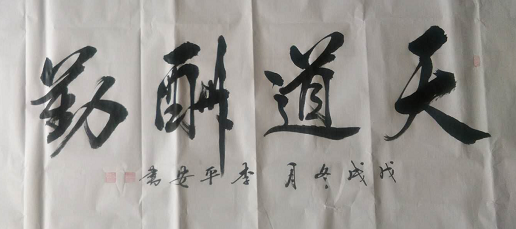 天道酬勤
戊戌冬月 李平安书